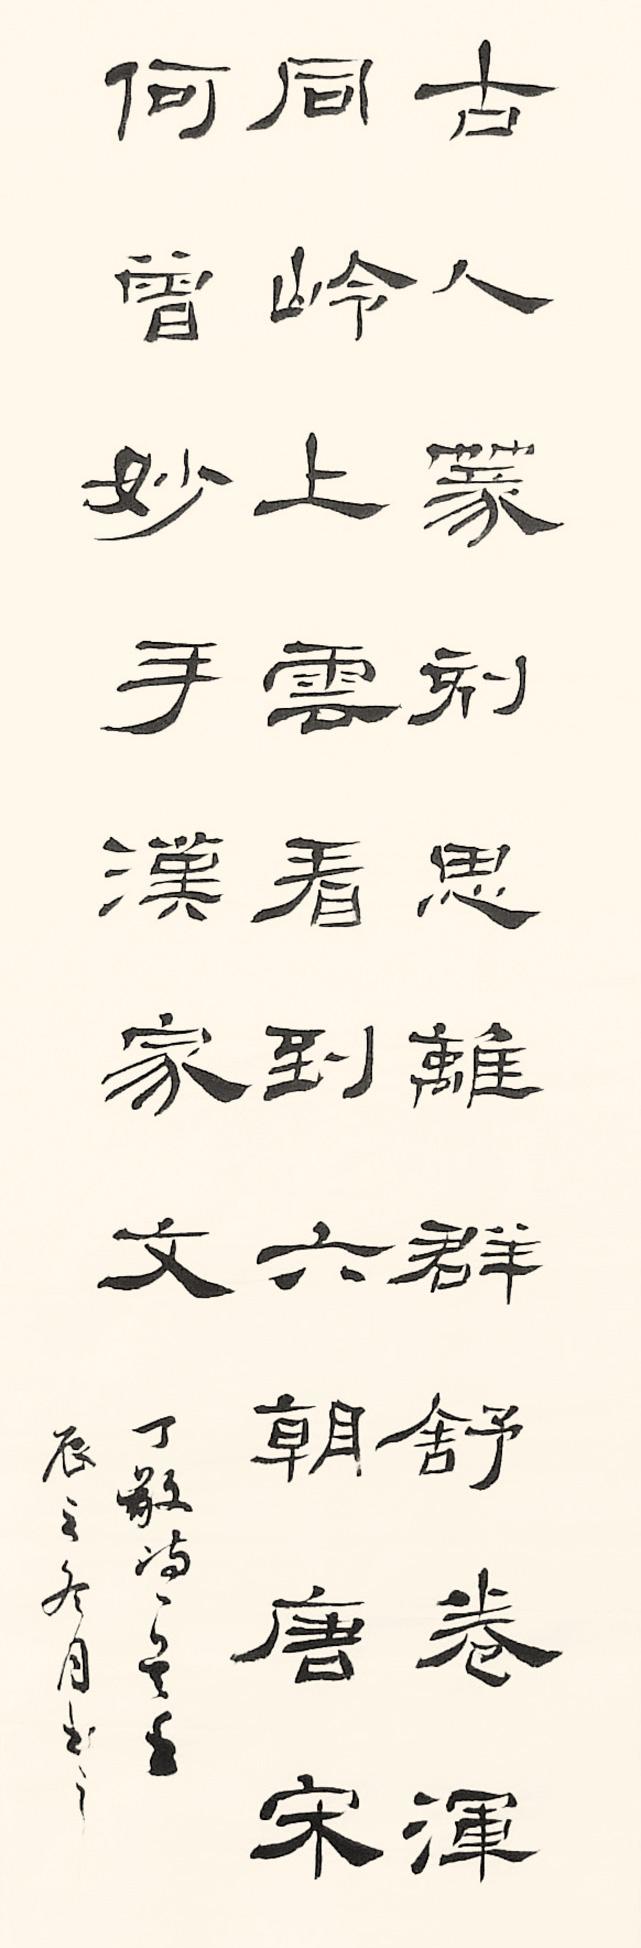 古人篆刻思離群舒卷渾
同岭上雲看到六朝唐宋
何曾妙手漢家文
丁敬诗一首壬
辰之冬月书之